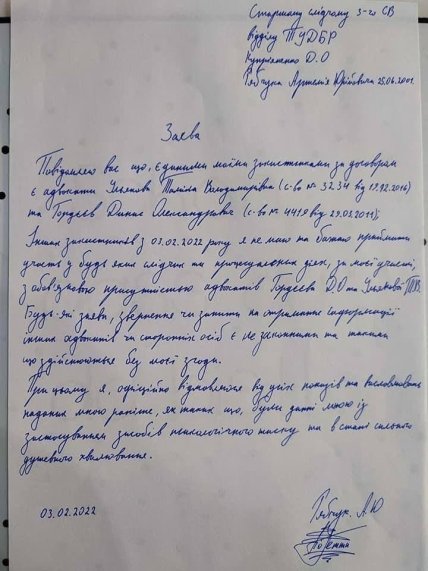 Старшому слідчому 3-го СВ
відділу ТУДБР
Купріяненко Д.О
Рябчука Артемія Юрійовича 25.06.2001
Заява
Повідомляю вас що, єдиними моїми захистниками за договорам
є адвокати Ульянова Таміла Володимирівна (с-во № 3234 від 19.02.2016)
та Гордєєв Денис Олександрович (с-во № 4419 від 29.03.2011);
Інших захистників з 03.02.2022 року я не маю та бажаю приймати
участь у будь яких слідчих та процесуальних діях, за моєї участі,
з обов'язковою присутністью адвокатів Гордєєва Д.О та Ульянової Т.В.
Будь-які заяви, звернення чи запити на отримання інформації
інших адвокатів чи сторонніх осіб є не законними та такими
що здійснюютья без моєї згоди.
При цьому я, офіційно відмовляюся від усіх показів та висловлювань
наданих мною раніше, як таких що, були дані мною із
застосуванням засобів психологічного тиску та в стані сильного
душевного хвилювання.
03.02.2022
Рябчук. А.Ю